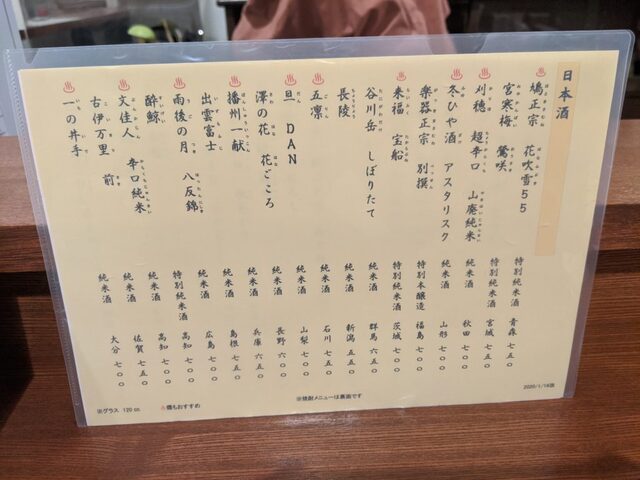 日本酒
鳩正宗 花吹雪55 特別純米酒 青森 七五〇
宮寒梅 鶯咲 特別純米酒 宮城 七五〇
刈穂 超辛口 山廃純米 純米酒 秋田 七〇〇
冬ひや酒 アスタリスク 純米酒 山形 七〇〇
楽器正宗 別撰 特別本醸造 福島 七〇〇
来福 宝船 特別純米酒 茨城 七〇〇
谷川岳 しぼりたて 純米酒 群馬 六五〇
長陵 純米酒 新潟 五五〇
五凛 純米酒 石川 七五〇
旦 DAN 純米酒 山梨 七〇〇
澤の花 花ごころ 純米酒 長野 六〇〇
播州一献 純米酒 兵庫 六五〇
出雲富士 純米酒 島根 七〇〇
雨後の月 八反錦 純米酒 広島 七〇〇
酔鯨 特別純米酒 高知 七〇〇
文佳人 辛口純米 純米酒 高知 七〇〇
古伊万里 前 純米酒 佐賀 七五〇
一の井手 純米酒 大分 七〇〇
2020/1/16版
※焼酎メニューは裏面です
※グラス 120cc
燗もおすすめ